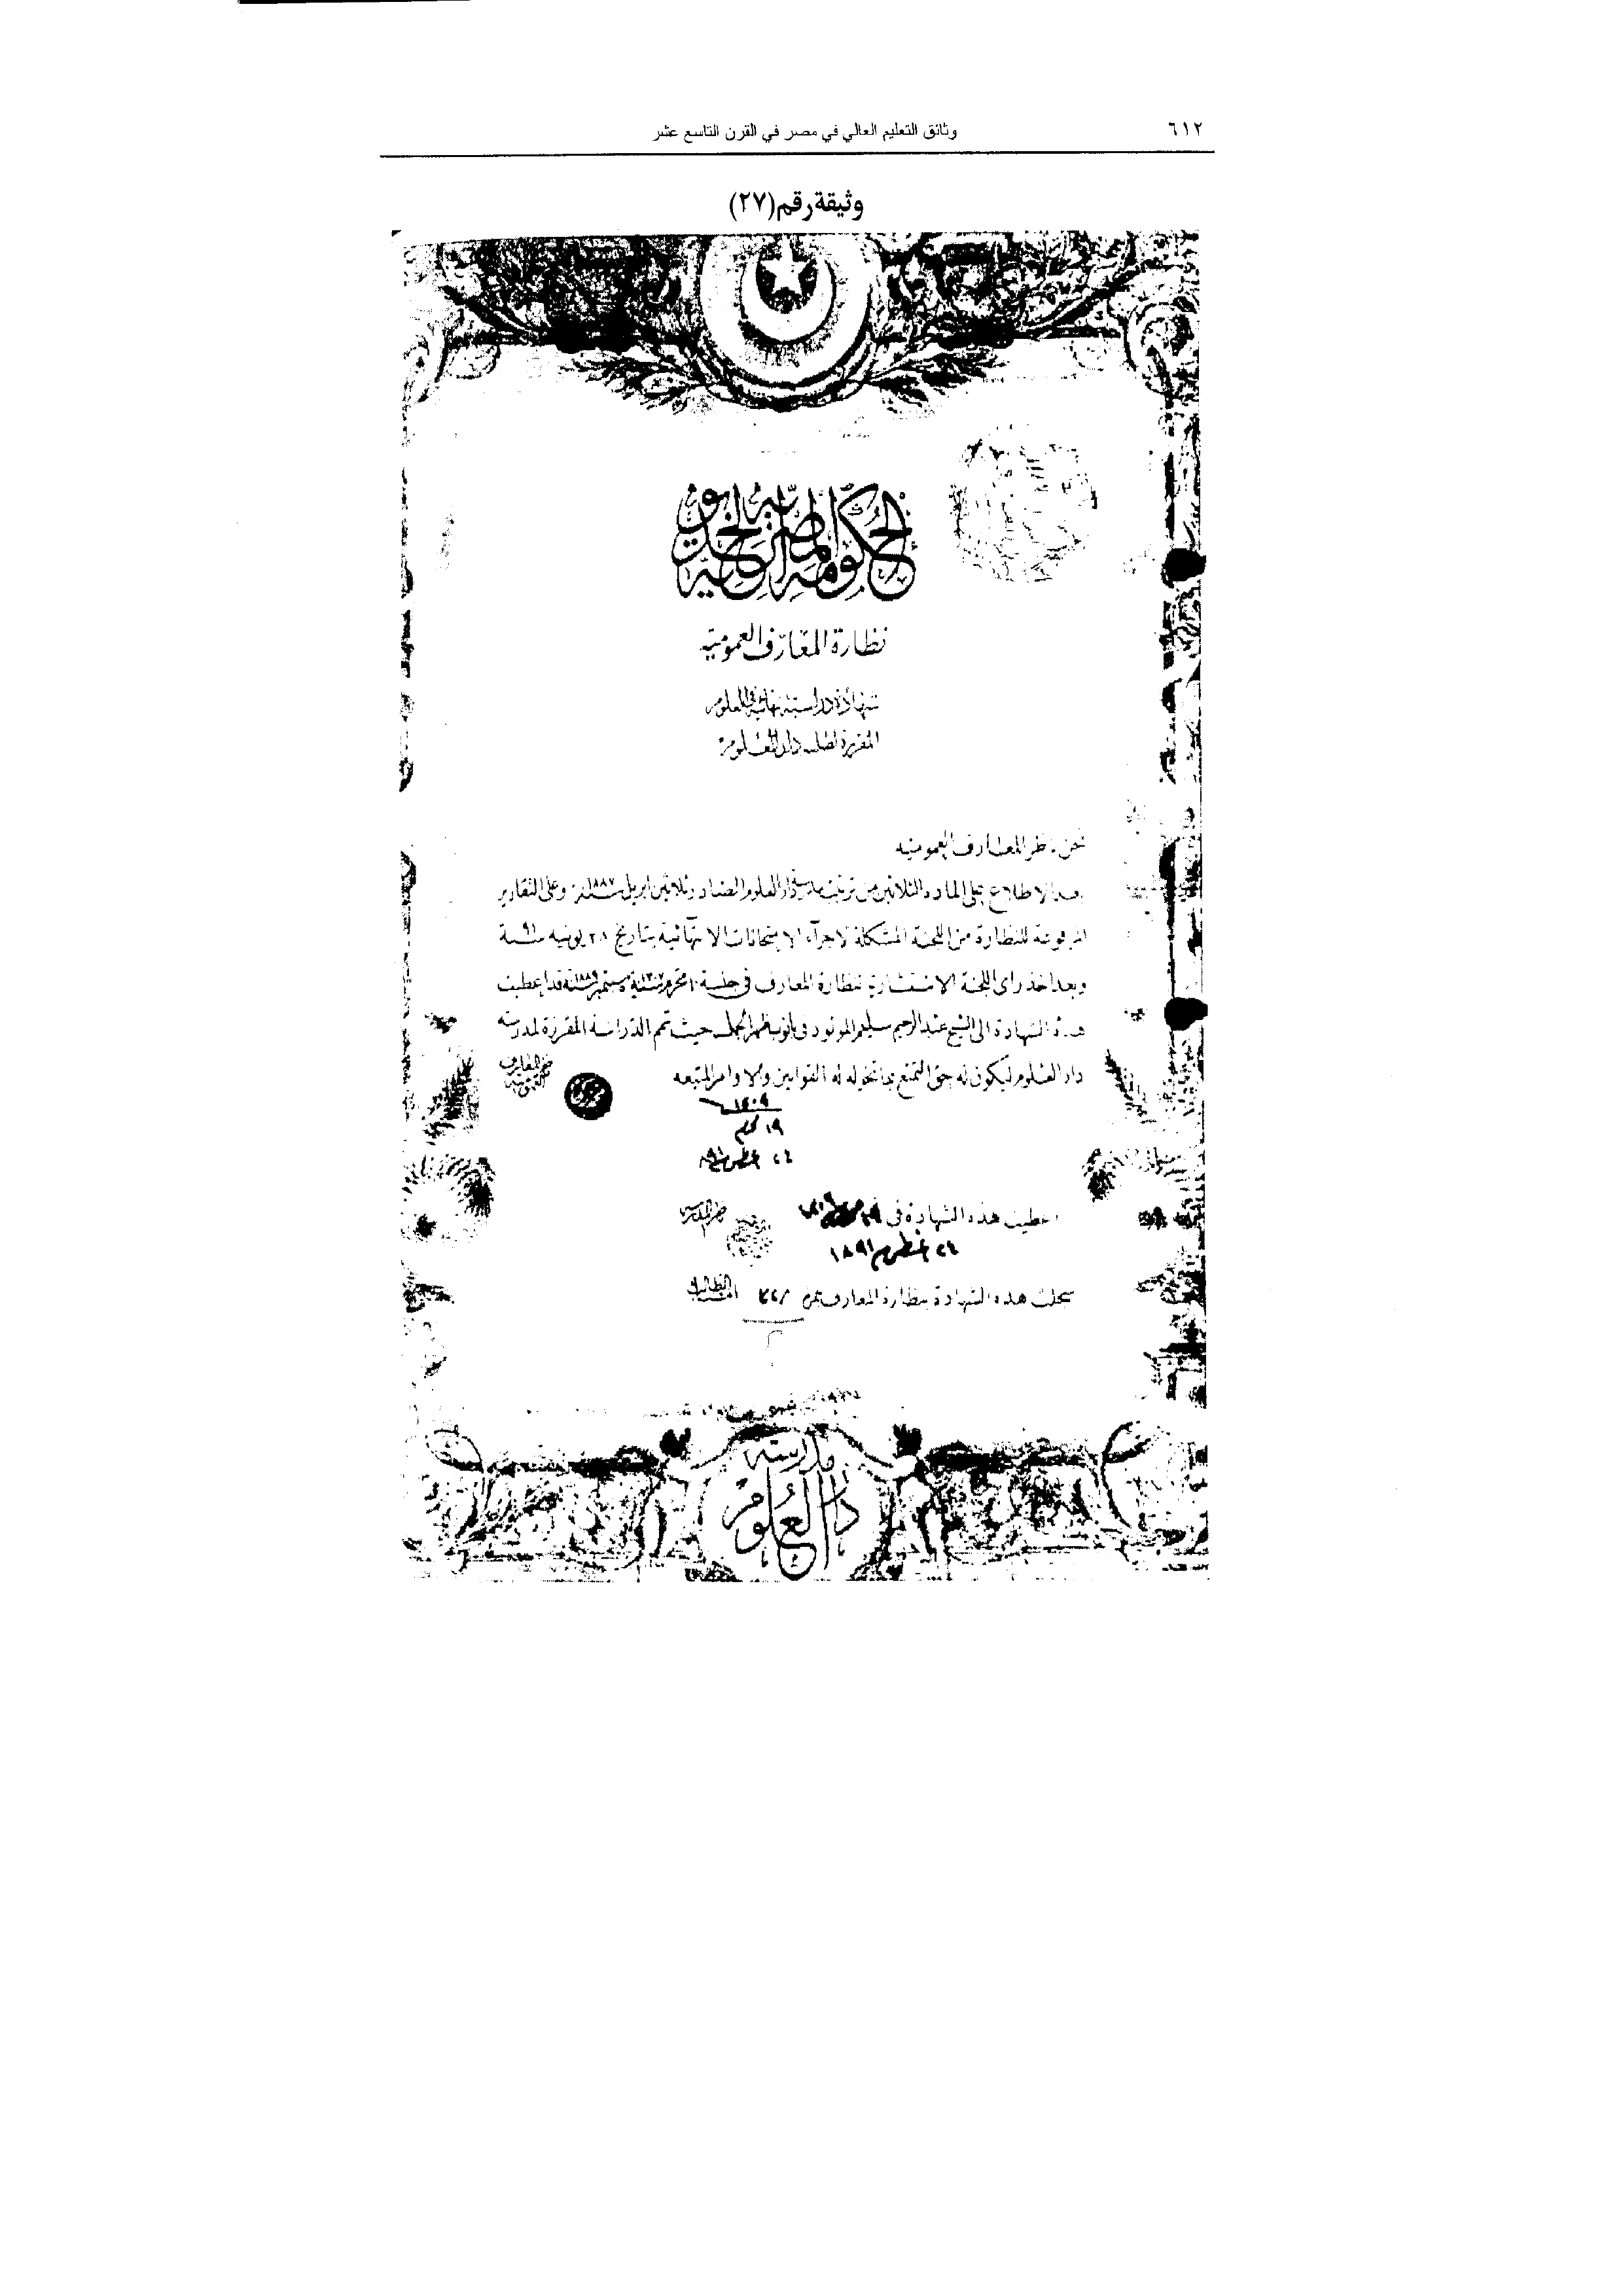 ٦١٢
وثائق التعليم العالي في مصر في القرن التاسع عشر
وثيقة رقم (٢٧)
الحكومة المصرية الخديوية
نظارة المعارف العمومية
شهادة دراسية نهائية في العلوم
المقررة لطلبة دار العلوم
نحن ناظر المعارف العمومية
بعد الاطلاع على المادة الثلاثين من ترتيب مدرسة دار العلوم الصادر ثلاثين ابريل سنة ١٨٨٧ وعلى التقارير
المرفوعة للنظارة من اللجنة المشكلة لاجرآء الامتحانات الانتهائية بتاريخ ٢٨ يونيه سنة ٩١
وبعد اخذ راى اللجنة الاستشارية بنظارة المعارف في جلسة ١٠ محرم سنة ١٣٠٧ سبتمبر سنة ١٨٨٩ قد اعطيت
هذه الشهادة الى الشيخ عبد الرحيم سليم المولود في بانوب ظهر الجمل حيث تمم الدراسة المقررة لمدرسة
دار العلوم ليكون له حق التمتع بما تخوله له القوانين والاوامر المتبعة
ناظر المعارف العمومية
١٣٠٩
١٩ محرم
٢٤ اغسطس ٩١
اعطيت هذه الشهادة في
ناظر المدرسة
٢٤ اغسطس ١٨٩١
سجلت هذه الشهادة بنظارة المعارف بنمرة
مدرسة
دار العلوم